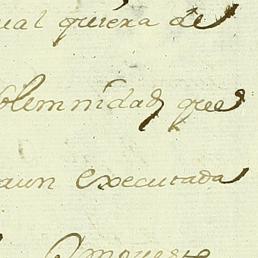 ual quiera de
olemnidad, que
aun executada